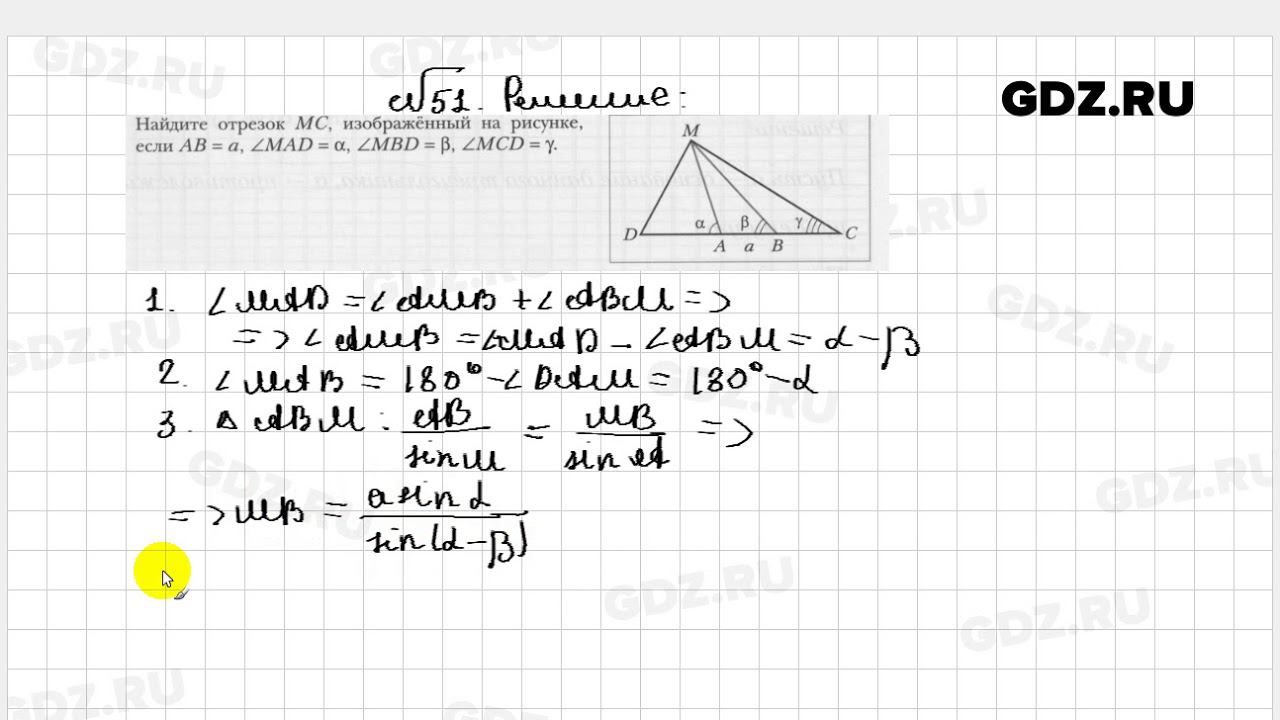 GDZ.RU
№51. Решение:
Найдите отрезок MC, изображённый на рисунке,
если AB = a, ∠MAD = α, ∠MBD = β, ∠MCD = γ.
M
α β γ
D A a B C
1. ∠MAD = ∠AMB + ∠ABM =>
=> ∠AMB = ∠MAD - ∠ABM = α - β
2. ∠MAB = 180° - ∠DAM = 180° - α
3. △ABM: AB/sin M = MB/sin A =>
=> MB = a sin α/sin(α - β)
GDZ.RU
GDZ.RU
GDZ.RU
GDZ.RU
GDZ.RU
GDZ.RU
GDZ.RU
GDZ.RU
GDZ.RU
GDZ.RU
GDZ.RU
GDZ.RU
GDZ.RU